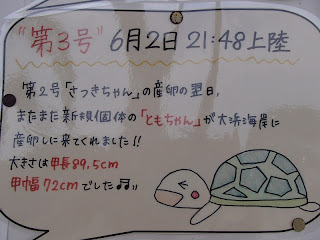 "第3号" 6月2日 21:48上陸
第2号「さつきちゃん」の産卵の翌日,
またまた新規個体の「ともちゃん」が大浜海岸に
産卵しに来てくれました!!
大きさは甲長89.5cm
甲幅72cmでした♬〃